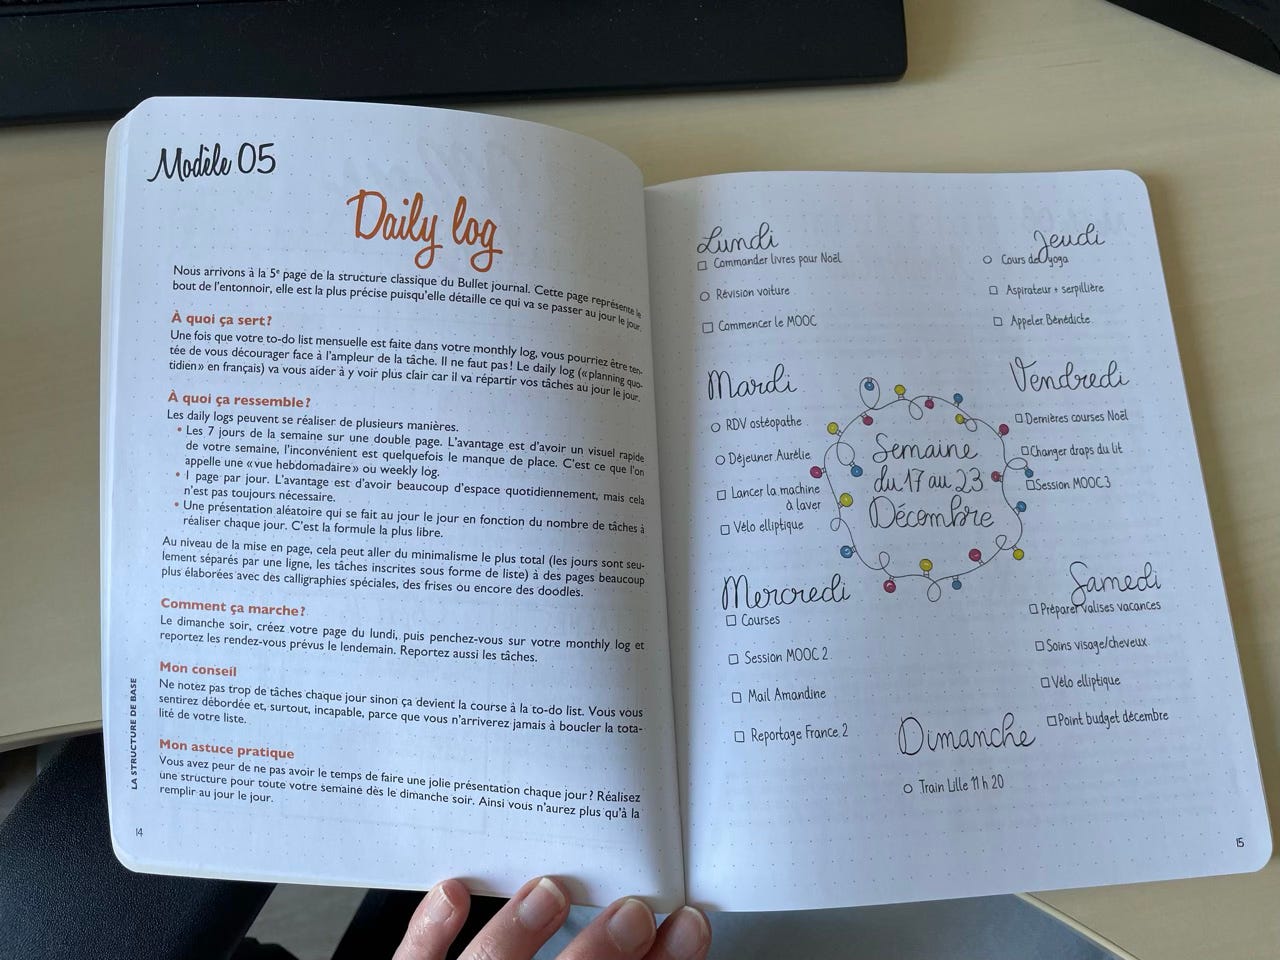 Modèle 05
Daily log
Nous arrivons à la 5e page de la structure classique du Bullet journal. Cette page représente le
bout de l'entonnoir, elle est la plus précise puisqu'elle détaille ce qui va se passer au jour le jour.
À quoi ça sert?
Une fois que votre to-do list mensuelle est faite dans votre monthly log, vous pourriez être ten-
tée de vous décourager face à l'ampleur de la tâche. Il ne faut pas! Le daily log («planning quo-
tidien» en français) va vous aider à y voir plus clair car il va répartir vos tâches au jour le jour.
À quoi ça ressemble?
Les daily logs peuvent se réaliser de plusieurs manières.
• Les 7 jours de la semaine sur une double page. L'avantage est d'avoir un visuel rapide
de votre semaine, l'inconvénient est quelquefois le manque de place. C'est ce que l'on
appelle une «vue hebdomadaire» ou weekly log.
• 1 page par jour. L'avantage est d'avoir beaucoup d'espace quotidiennement, mais cela
n'est pas toujours nécessaire.
• Une présentation aléatoire qui se fait au jour le jour en fonction du nombre de tâches à
réaliser chaque jour. C'est la formule la plus libre.
Au niveau de la mise en page, cela peut aller du minimalisme le plus total (les jours sont seu-
lement séparés par une ligne, les tâches inscrites sous forme de liste) à des pages beaucoup
plus élaborées avec des calligraphies spéciales, des frises ou encore des doodles.
Comment ça marche?
Le dimanche soir, créez votre page du lundi, puis penchez-vous sur votre monthly log et
reportez les rendez-vous prévus le lendemain. Reportez aussi les tâches.
Mon conseil
Ne notez pas trop de tâches chaque jour sinon ça devient la course à la to-do list. Vous vous
sentirez débordée et, surtout, incapable, parce que vous n'arriverez jamais à boucler la tota-
lité de votre liste.
Mon astuce pratique
Vous avez peur de ne pas avoir le temps de faire une jolie présentation chaque jour? Réalisez
une structure pour toute votre semaine dès le dimanche soir. Ainsi vous n'aurez plus qu'à la
remplir au jour le jour.
LA STRUCTURE DE BASE
14
Lundi
Commander livres pour Noël
Révision voiture
Commencer le MOOC
Mardi
RDV ostéopathe
Déjeuner Aurélie
Lancer la machine
à laver
Vélo elliptique
Mercredi
Courses
Session MOOC 2
Mail Amandine
Reportage France 2
Semaine
du 17 au 23
Décembre
Jeudi
Cours de yoga
Aspirateur + serpillière
Appeler Bénédicte
Vendredi
Dernières courses Noël
Changer draps du lit
Session MOOC 3
Samedi
Préparer valises vacances
Soins visage/cheveux
Vélo elliptique
Point budget décembre
Dimanche
Train Lille 11 h 20
15